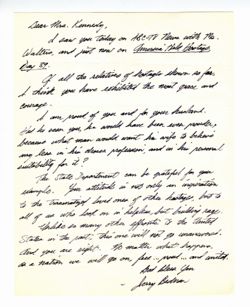 Dear Mrs. Kennedy,
I saw you today on ABC-TV News with Ms.
Walters, and just now on America Held Hostage
Day 89.
Of all the relatives of hostages shown so far,
I think you have exhibited the most grace and
courage.
I am proud of you and for your husband.
Had he seen you, he would have been even prouder,
because what man would want his wife to behave
any less in his chosen profession, and in his personal
for it?
The State Department can be grateful for your
example. Your attitude is not only an inspiration
to the loved ones of other hostages, but to
all of us who look on in helpless, but building rage.
Unlike so many other affronts to the United
States in the past, this one will not go unanswered.
And you are right. No matter what happens,
as a nation we will go on free, proud, and united.
God bless you
Jerry